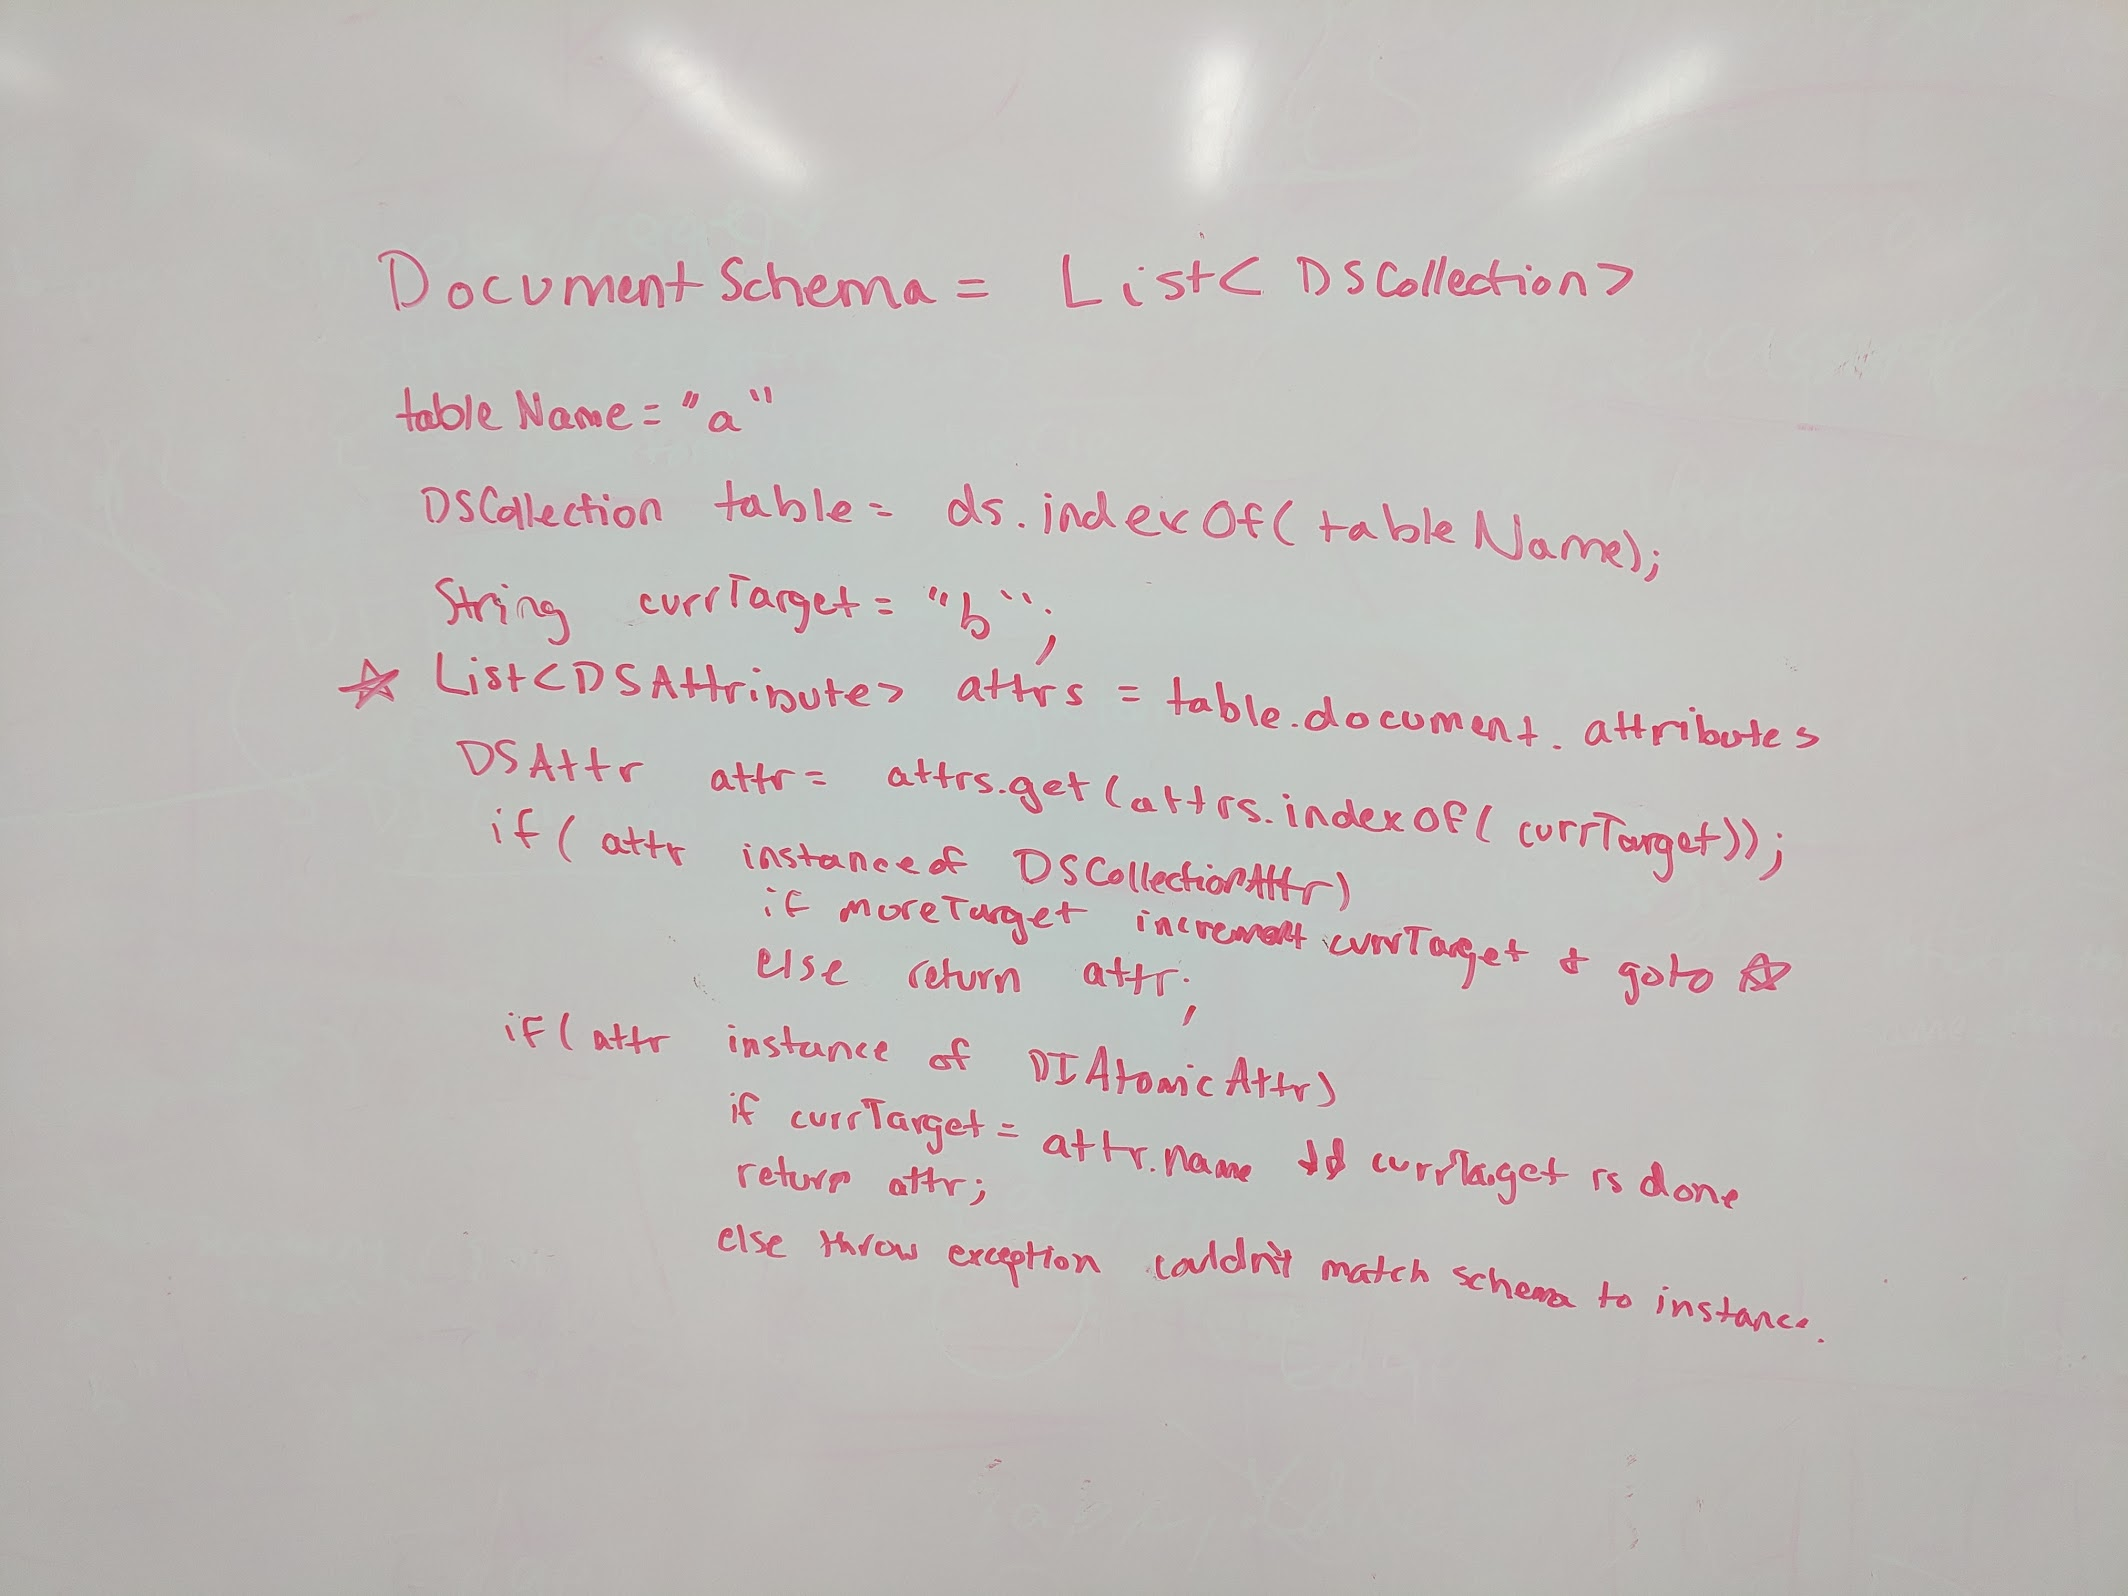 Document Schema = List< DSCollection>
table Name = "a"
DSCollection table = ds.indexOf( table Name);
String currTarget = "b";
☆ List<DSAttribute> attrs = table.document.attributes
DSAttr attr = attrs.get(attrs.indexOf( currTarget));
if( attr instance of DSCollectionAttr)
if moreTarget increment currTarget + goto ☆
else return attr;
if( attr instance of DIAtomicAttr)
if currTarget = attr.name && currTarget is done
return attr;
else throw exception couldn't match schema to instance.